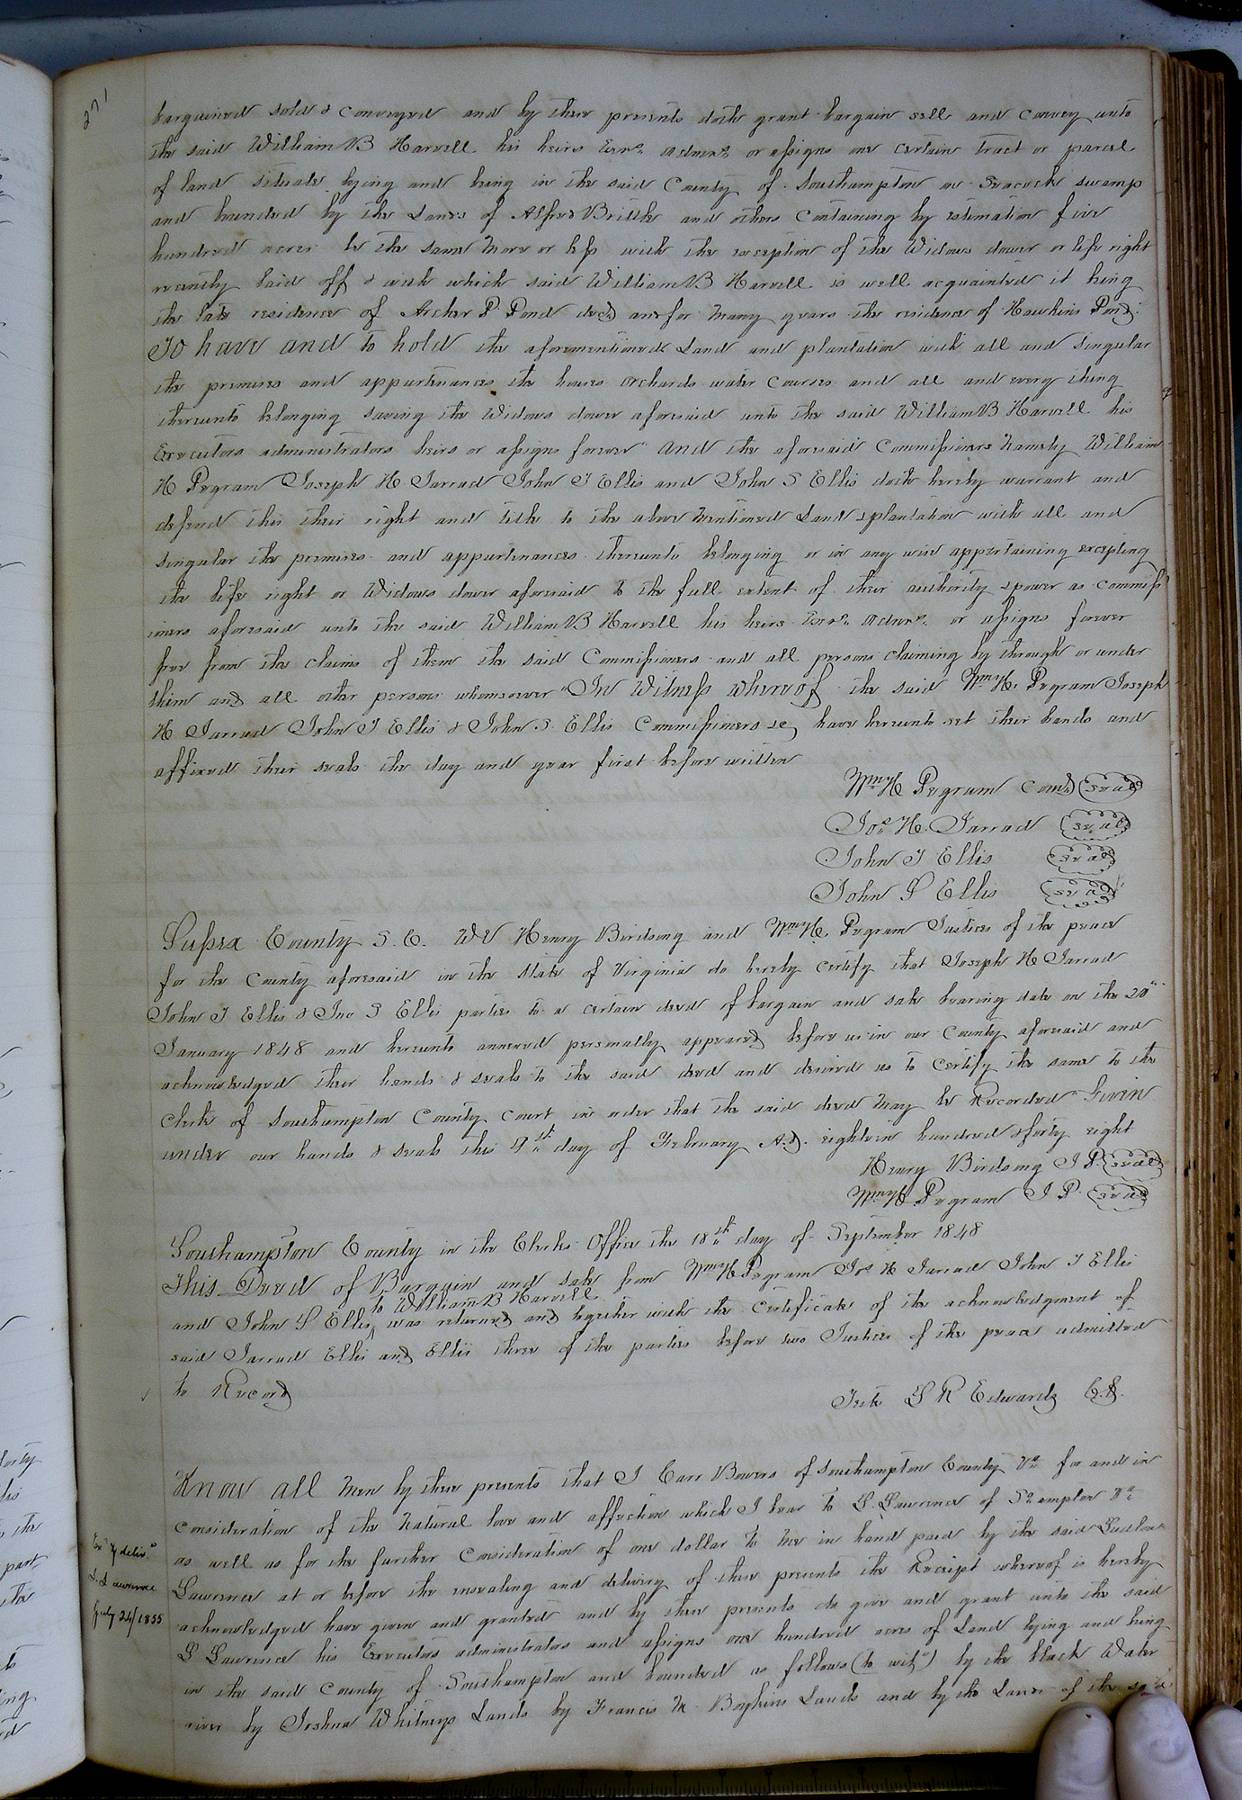 271
bargained sold & conveyed and by these presents doth grant bargain sell and convey unto
the said William B Harvell his heirs Exrs. Admrs. or assigns one certain tract or parcel
of land situate lying and being in the said County of Southampton on Seacock swamp
and bounded by the Lands of Alfred Brittle and others Containing by estimation five
hundred acres be the same more or less with the exception of the Widows dower or life right
recently laid off & with which said William B Harvell is well acquainted it being
the late residence of Archer P Pond decd and for many years the residence of Hawkins Pond.
To have and to hold the aforementioned Land and plantation with all and Singular
the premises and appurtenances the houses orchards water Courses and all and every thing
thereunto belonging saving the Widows dower aforesaid unto the said William B Harvell his
Executors administrators heirs or assigns forever and the aforesaid Commissioners Namely William
H Pegram Joseph H Jarrad John T Ellis and John S Ellis doth hereby warrant and
defend this their right and title to the above mentioned Land & plantation with all and
singular the premises and appurtenances thereunto belonging or in any wise appertaining excepting
the life right or Widows dower aforesaid to the full extent of their authority & power as commiss
ioners aforesaid unto the said William B Harvell his heirs Exrs. Admrs. or assigns forever
free from the claims of them the said Commissioners and all persons claiming by through or under
them and all other persons whomsoever "In Witness whereof the said Wm H. Pegram Joseph
H Jarrad John T Ellis & John S Ellis Commissioners &c, have hereunto set their hands and
affixed their seals the day and year first before written
Wm H Pegram Comd (seal)
Jos. H. Jarrad (seal)
John T Ellis (seal)
John S Ellis (seal)
Sussex County S. C. We Henry Birdsong and Wm H. Pegram Justices of the peace
for the County aforesaid in the State of Virginia do hereby certify that Joseph H Jarrad
John T Ellis & Jno S Ellis parties to a certain deed of bargain and sale bearing date on the 20th
January 1848 and hereunto annexed personally appeared before us in our County aforesaid and
acknowledged their hands & seals to the said deed and desired us to certify the same to the
Clerk of Southampton County Court in order that the said deed may be Recorded Given
under our hands & seals this 17th day of February A.D. eighteen hundred & forty eight
Henry Birdsong J. P. (seal)
Wm H Pegram J. P. (seal)
Southampton County in the Clerks Office the 18th day of September 1848
This Deed of Bargain and sale from Wm H Pegram Jos. H Jarrad John T Ellis
to William B Harvell
and John S Ellis was returned and together with the Certificate of the acknowledgment of
said Jarrad Ellis and Ellis three of the parties before two Justices of the peace admitted
to Record
Teste L R Edwards C.C.
Know all men by these presents that I Carr Bowers of Southampton County Va for and in
consideration of the Natural love and affection which I bear to L Lawrence of So.ampton Va
as well as for the further Consideration of one dollar to me in hand paid by the said Ludlow
Lawrence at or before the ensealing and delivery of these presents the Receipt whereof is hereby
acknowledged have given and granted and by these presents do give and grant unto the said
L Lawrence his Executors administrators and assigns one hundred acres of Land lying and being
in the said County of Southampton and bounded as follows (to wit) by the black Water
river by Joshua Whitneys Lands by Francis M. Boykins Lands and by the Lands of the said
Exd & delivd.
L. Lawrence
July 24/1855